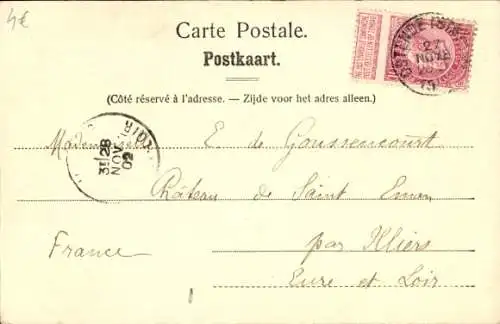 4€
Carte Postale.
Postkaart.
(Côté réservé à l'adresse. — Zijde voor het adres alleen.)
OSTENDE
27
NOV
28
NOV
02
Mademoiselle E. de Goussencourt
Château de Saint Eman
par Illiers
Eure et Loir
France